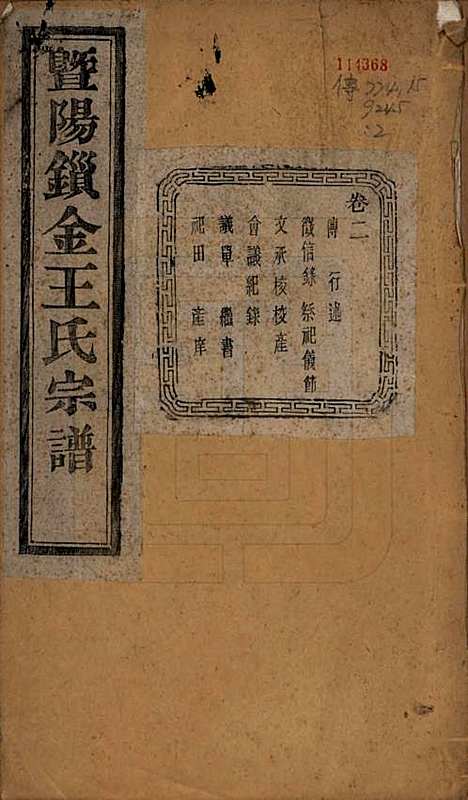 暨陽鎖金王氏宗譜
卷二
傳 行述
徵信錄 祭祀儀節
文承校校產
會議紀錄
議單 繼書
祀田 產庠
114368
傳 774.15
9245
:2